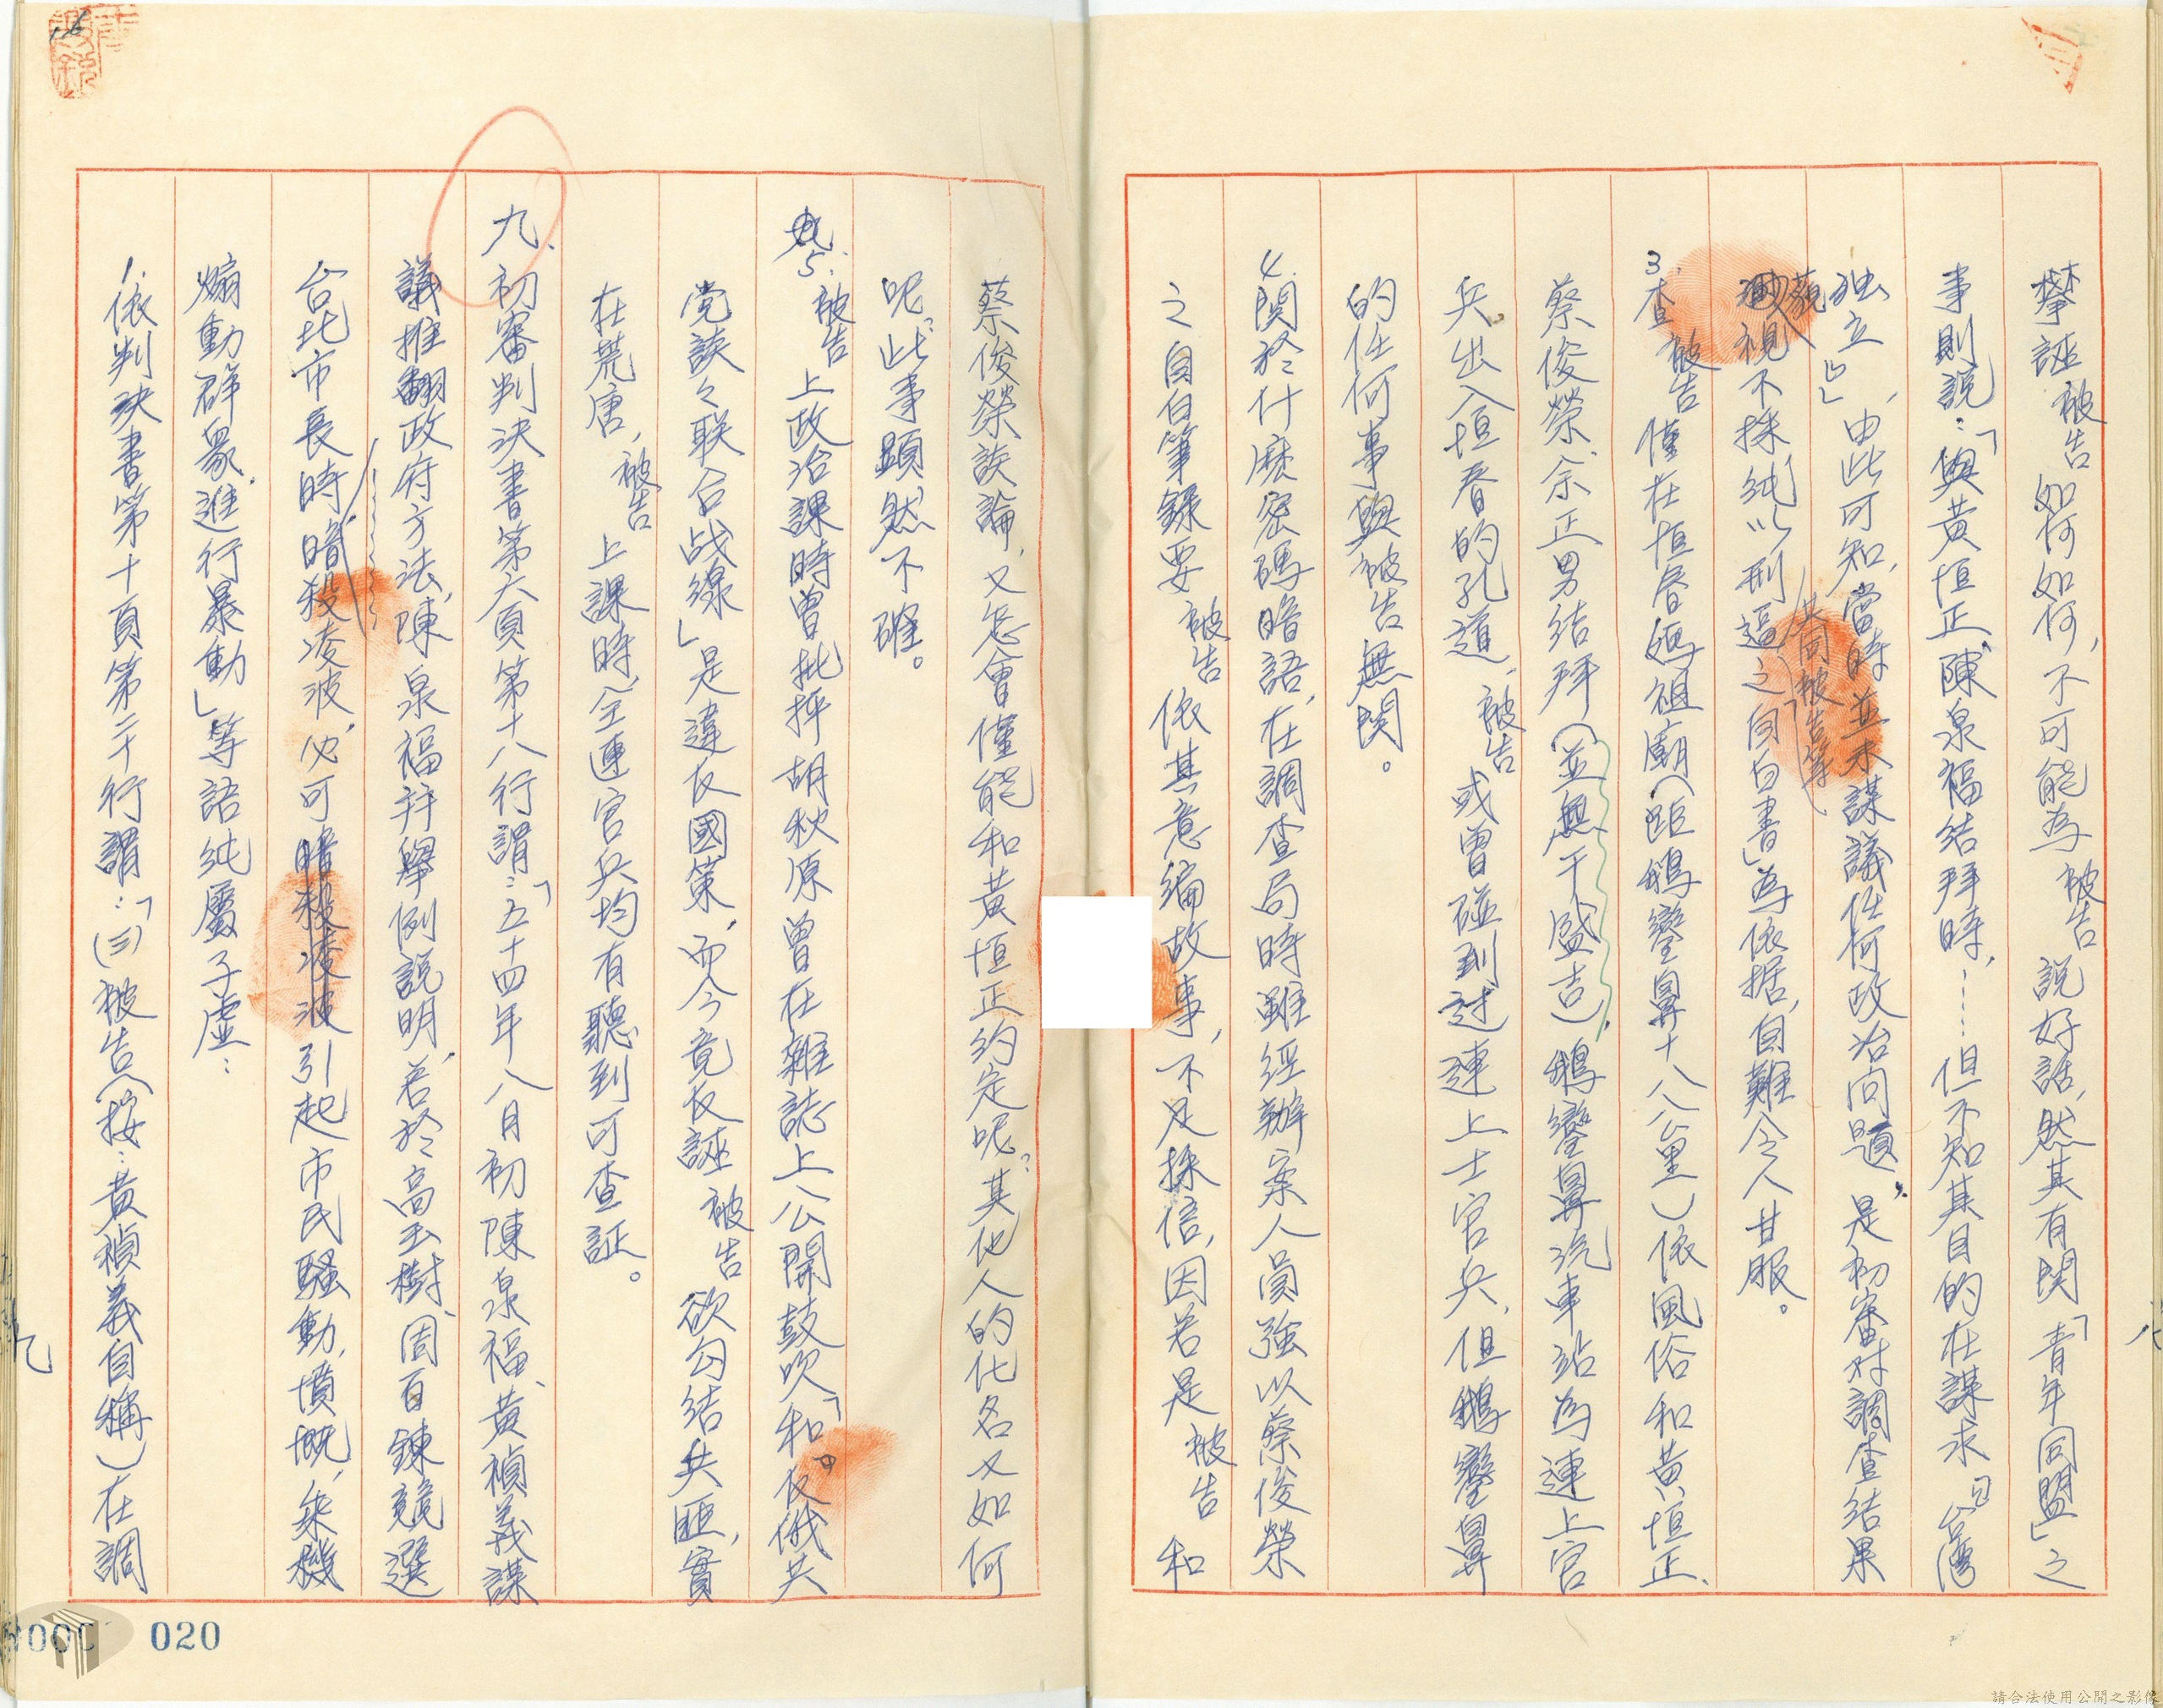 攀誣被告如何如何，不可能為被告說好話，然其有関「青年同盟」之
事則說：「與黃恒正、陳泉福結拜時，……但不知其目的在謀求『台灣
独立』」，由此可知，當時並未謀議任何政治问題，是初審对調查結果
藐視不採，純以刑逼之「共同被告等自白書」為依据，自難令人甘服。
3.查被告僅在恒春媽祖廟（距鵝鑾鼻十八公里）依風俗和黃恒正、
蔡俊榮、余正男結拜（並無干盛吉），鵝鑾鼻汽車站為連上官
兵出入恒春的孔道，被告或曾碰到过連上士官兵，但鵝鑾鼻
的任何事與被告無関。
4.関於什麼密碼暗語，在調查局時雖經辦案人員強以蔡俊榮
之自白筆錄要被告依其意編故事，不足採信，因若是被告和
蔡俊榮談論，又怎會僅能和黃恒正約定呢？其他人的化名又如何
呢？此事顕然不確。
5.被告上政治課時曾批抨胡秋原曾在雜誌上公開鼓吹「和中反俄共
党談々联合战線」是違反國策，而今竟反誣被告欲勾结共匪，實
在荒唐，被告上課時，全連官兵均有聽到可查証。
九、初審判決書第六頁第十八行謂：「五十四年八月初陳泉福、黃禎義謀
議推翻政府方法，陳泉福并舉例說明，若於高玉樹、周百鍊競選
台北市長時，暗殺凌波，必可暗殺凌波引起市民騷動，憤慨，乘機
煽動群衆，進行暴動」等語純屬子虛：
1.依判決書第十頁第二十行謂：「（三）被告（按：黃禎義自稱）在調
020
請合法使用公開之影像